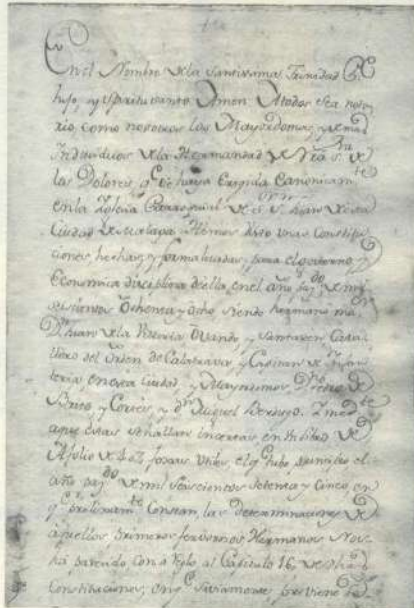 En el Nombre de la Santissima Trinidad Pe
hijo, y Spiritu santo Amen. A todos sea noto
rio como nosotros los Mayordomos, y demas
Individuos de la Hermandad de Nra Sra de
los Dolores, qe se haya Erigida Canonicamte
en la Iglesia Parroquial de Sr Sn Juan de esta
Ciudad de Malaga. Hemos visto unas Constitu
ciones hechas, y formalizadas, para el govierno, y
Economica disciplina de ella, en el año pasdo de mil
seiscientos Ochenta y Ocho, siendo hermano mar
Dn Juan de la Ovando, y Santaren Cava
llero del Orden de Calatrava, y Capitan de Ynfan
teria, en esta Ciudad, y Maymos Dn Pedro de
Brito, y Cortés, y dn Miguel Berdugo. Y medte
a que éstas se hallan incertas en Un libro de
A folio de 402 foxas utiles, el qe tubo principio el
año pasdo de mil Seiscientos Setenta y Cinco, en
qe Constan, las determinaciones de
aquellos primeros fervorosos Hermanos. Nos
há parecido con arreglo al Capitulo 16 de dhas
Constituciones, en qe Saviamente previene